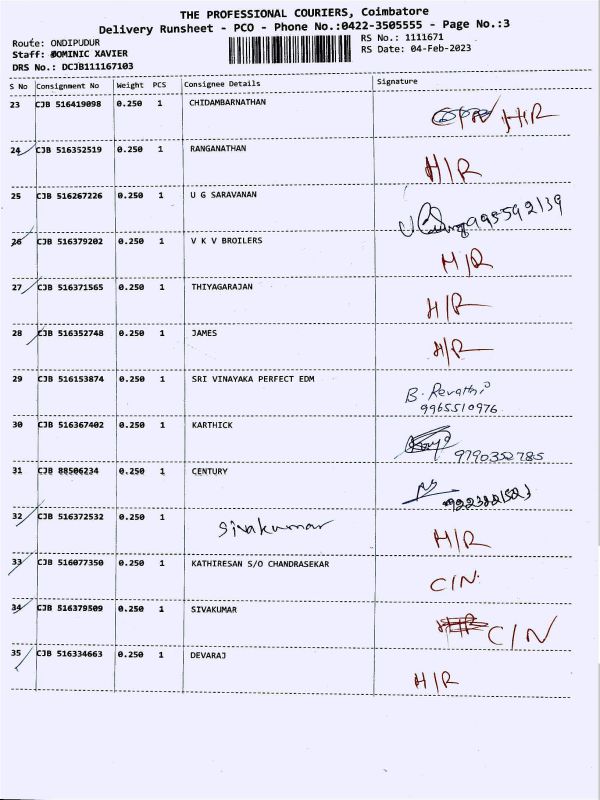 THE PROFESSIONAL COURIERS, Coimbatore
Delivery Runsheet - PCO - Phone No.:0422-3505555 - Page No.:3
Route: ONDIPUDUR
RS No.: 1111671
Staff: DOMINIC XAVIER
RS Date: 04-Feb-2023
DRS No.: DCJB111167103
S No Consignment No Weight PCS Consignee Details Signature
23 CJB 516419098 0.250 1 CHIDAMBARNATHAN H/R
24 CJB 516352519 0.250 1 RANGANATHAN H/R
25 CJB 516267226 0.250 1 U G SARAVANAN
26 CJB 516379202 0.250 1 V K V BROILERS H/R
27 CJB 516371565 0.250 1 THIYAGARAJAN H/R
28 CJB 516352748 0.250 1 JAMES H/R
29 CJB 516153874 0.250 1 SRI VINAYAKA PERFECT EDM B. Revathi
9965510976
30 CJB 516367402 0.250 1 KARTHICK 9790352785
31 CJB 88506234 0.250 1 CENTURY
32 CJB 516372532 0.250 1 Sivakumar H/R
33 CJB 516077350 0.250 1 KATHIRESAN S/O CHANDRASEKAR C/N.
34 CJB 516379509 0.250 1 SIVAKUMAR C/N
35 CJB 516334663 0.250 1 DEVARAJ H/R